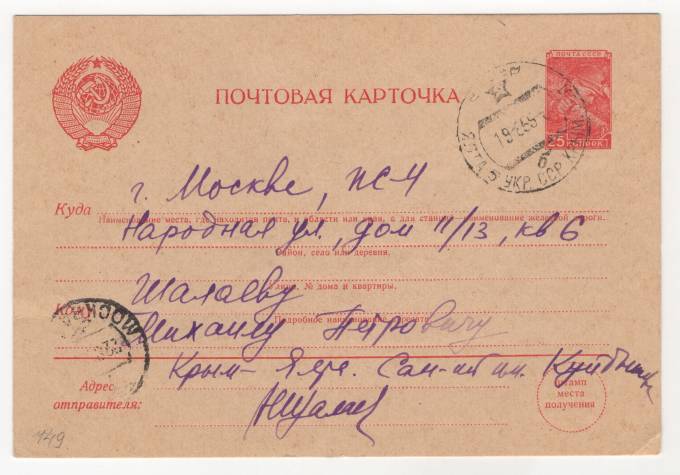 ПОЧТА СССР
25 КОПЕЕК
ПОЧТОВАЯ КАРТОЧКА
ЯЛТА
УКР. ССР
19
г. Москве, ЖС-4
Куда
Наименование места, где находится почта, и области или края, а для станций наименование железной дороги.
Народная ул., дом 11/13, кв 6
Район, село или деревня.
Улица, № дома и квартиры.
Шалаеву
Кому
Подробное наименование адресата
Михаилу Петровичу
МОСКВА
Крым - Ялта. Сан-ий им. Куйбышева
Адрес
отправителя:
Штамп
места
получения
149